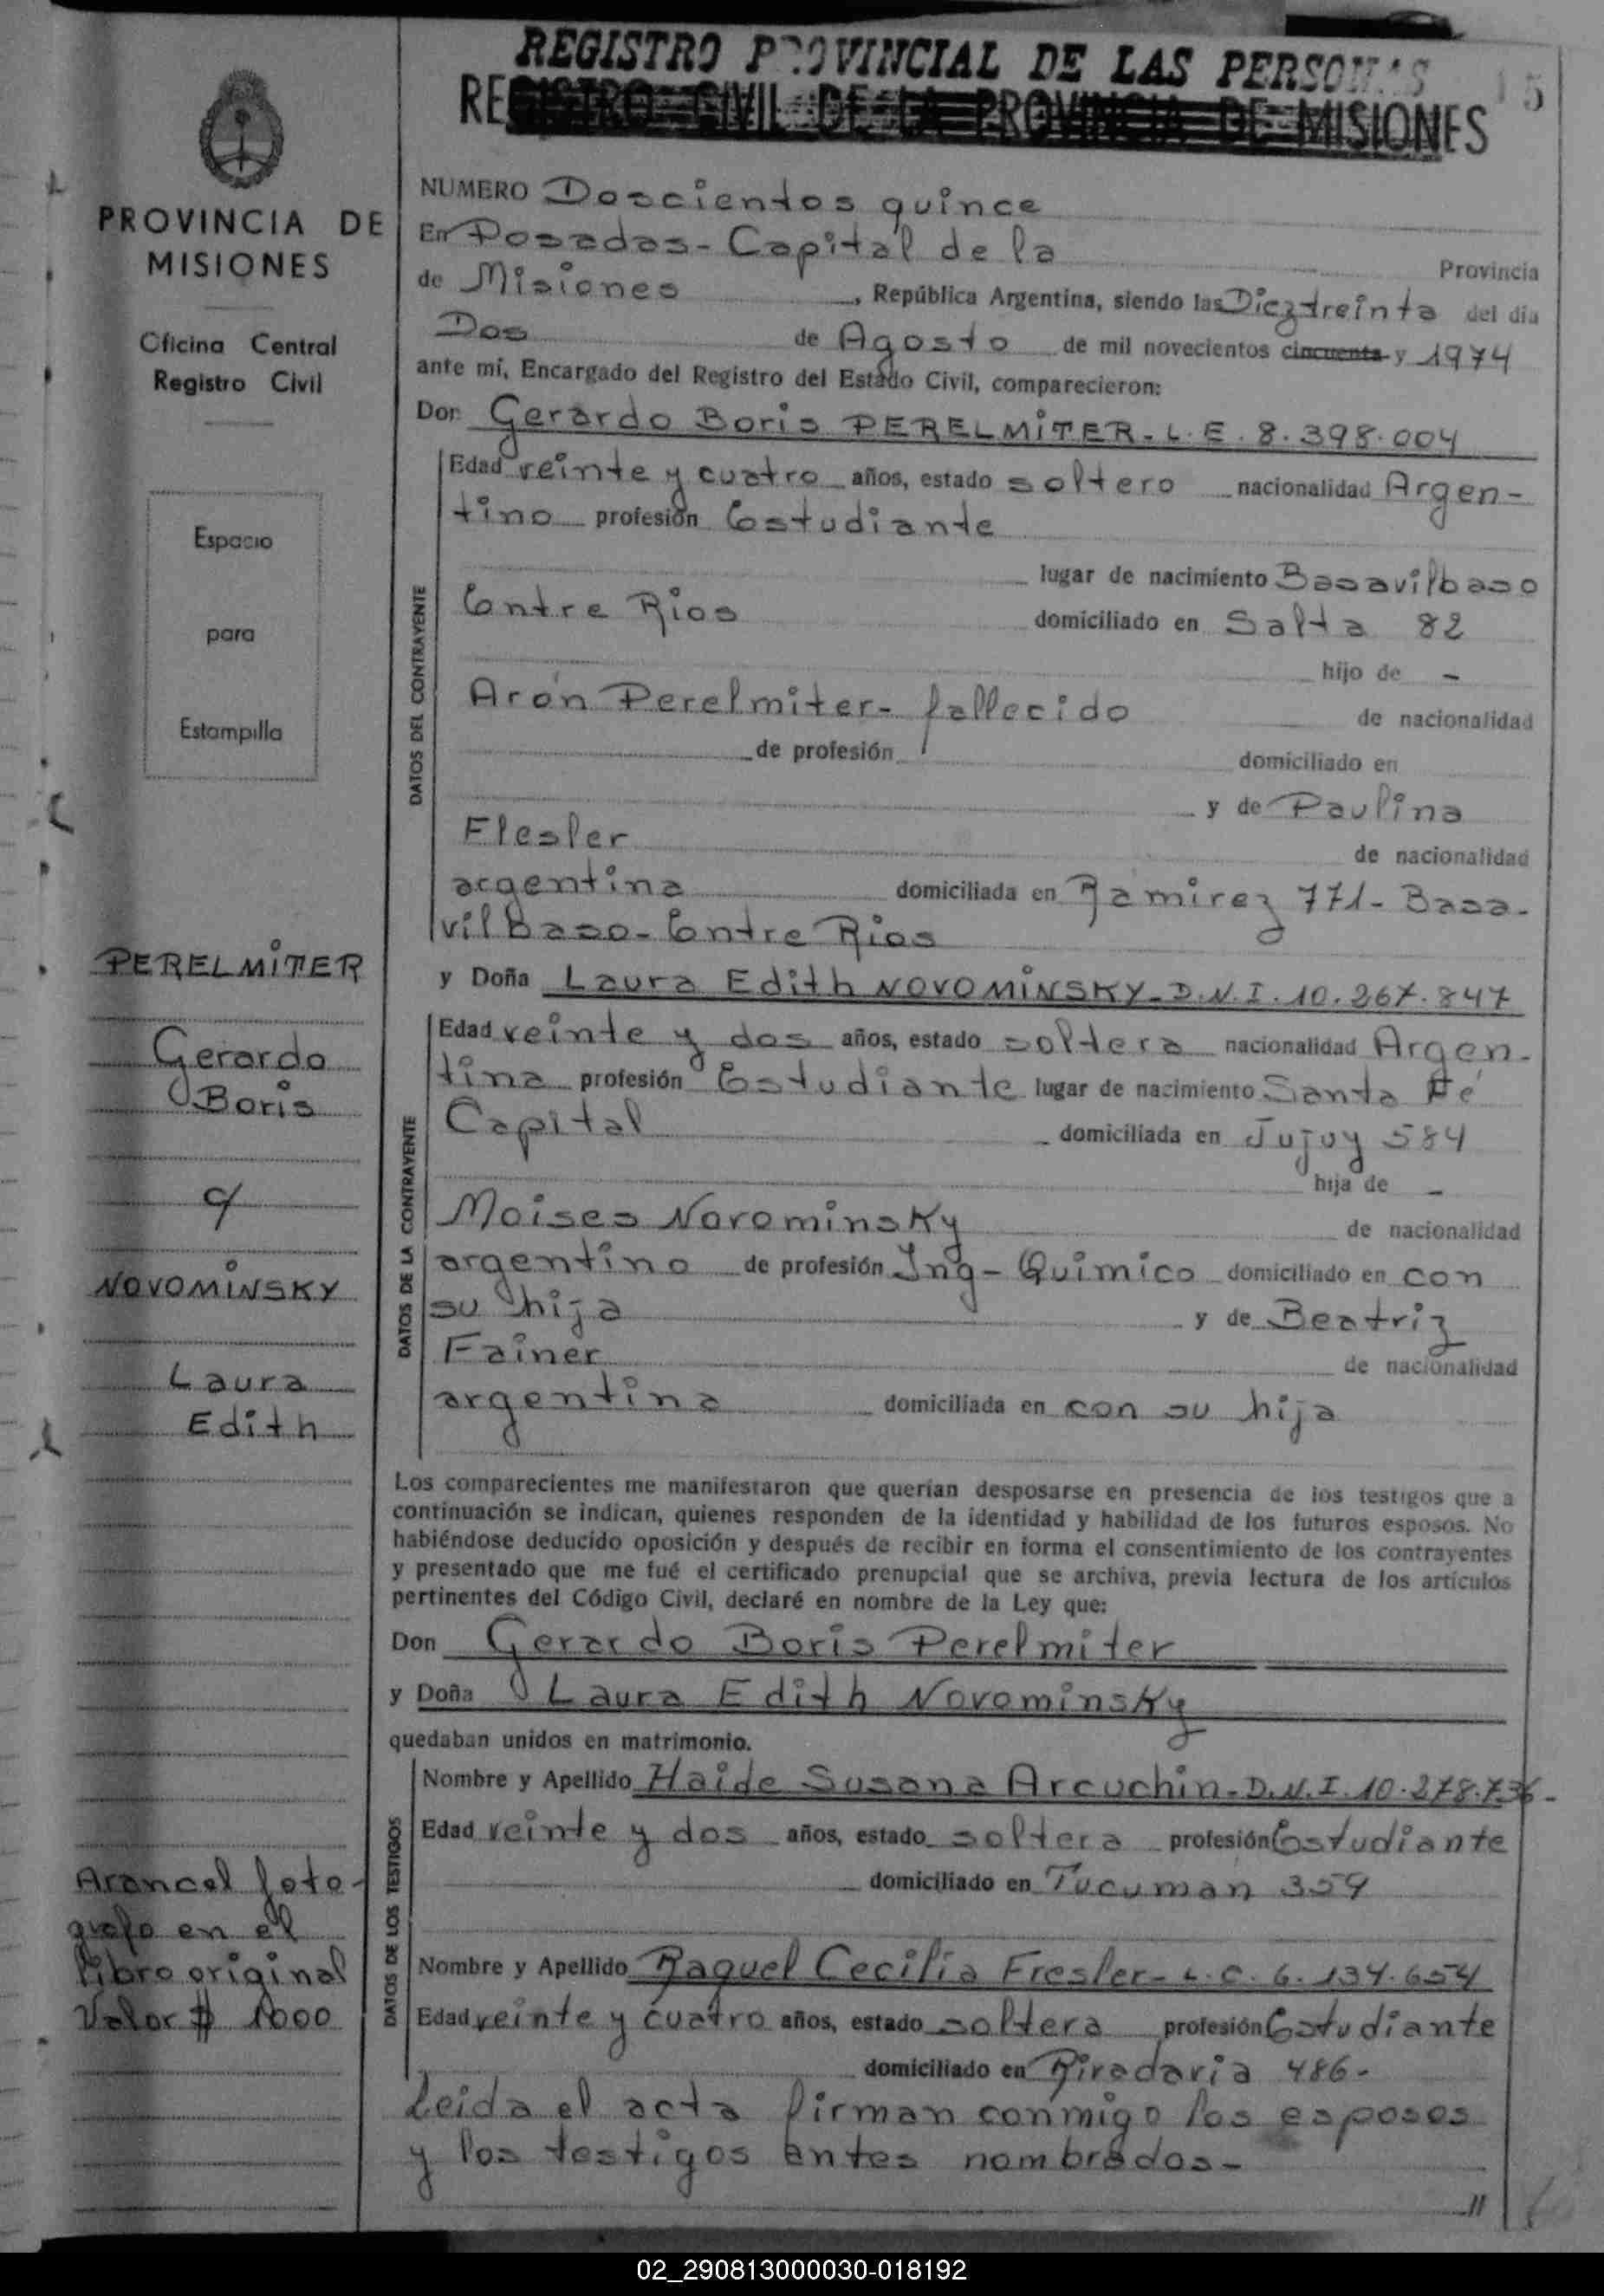 REGISTRO PROVINCIAL DE LAS PERSONAS
REGISTRO CIVIL DE LA PROVINCIA DE MISIONES
15
PROVINCIA DE
MISIONES
Oficina Central
Registro Civil
Espacio
para
Estampilla
PERELMITER
Gerardo
Boris
c/
NOVOMINSKY
Laura
Edith
Arancel foto-
grafo en el
libro original
Valor $ 1000
NUMERO Doscientos quince
En Posadas - Capital de la Provincia
de Misiones, República Argentina, siendo las Diez treinta del día
Dos de Agosto de mil novecientos cincuenta y 1974
ante mí, Encargado del Registro del Estado Civil, comparecieron:
Don Gerardo Boris PERELMITER - L.E. 8.398.004
DATOS DEL CONTRAYENTE
Edad veinte y cuatro años, estado soltero nacionalidad Argen-
tino profesión Estudiante
lugar de nacimiento Basavilbaso
Entre Rios domiciliado en Salta 82
hijo de -
Arón Perelmiter - fallecido de nacionalidad
de profesión domiciliado en
y de Paulina
Flesler de nacionalidad
argentina domiciliada en Ramirez 771 - Basa-
vilbaso - Entre Rios
y Doña Laura Edith NOVOMINSKY - D.N.I. 10.267.847
DATOS DE LA CONTRAYENTE
Edad veinte y dos años, estado soltera nacionalidad Argen-
tina profesión Estudiante lugar de nacimiento Santa Fé
Capital domiciliada en Jujuy 584
hija de -
Moises Novominsky de nacionalidad
argentino de profesión Ing - Quimico domiciliado en con
su hija y de Beatriz
Fainer de nacionalidad
argentina domiciliada en con su hija
Los comparecientes me manifestaron que querían desposarse en presencia de los testigos que a
continuación se indican, quienes responden de la identidad y habilidad de los futuros esposos. No
habiéndose deducido oposición y después de recibir en forma el consentimiento de los contrayentes
y presentado que me fué el certificado prenupcial que se archiva, previa lectura de los artículos
pertinentes del Código Civil, declaré en nombre de la Ley que:
Don Gerardo Boris Perelmiter
y Doña Laura Edith Novominsky
quedaban unidos en matrimonio.
DATOS DE LOS TESTIGOS
Nombre y Apellido Haide Susana Arcuchin - D.N.I. 10.278.736 -
Edad veinte y dos años, estado soltera profesión Estudiante
domiciliado en Tucuman 359
Nombre y Apellido Raquel Cecilia Fresler - L.C. 6.134.654
Edad veinte y cuatro años, estado soltera profesión Estudiante
domiciliado en Rivadavia 486 -
Leida el acta firman conmigo los esposos
y los testigos antes nombrados -
//
02_290813000030-018192